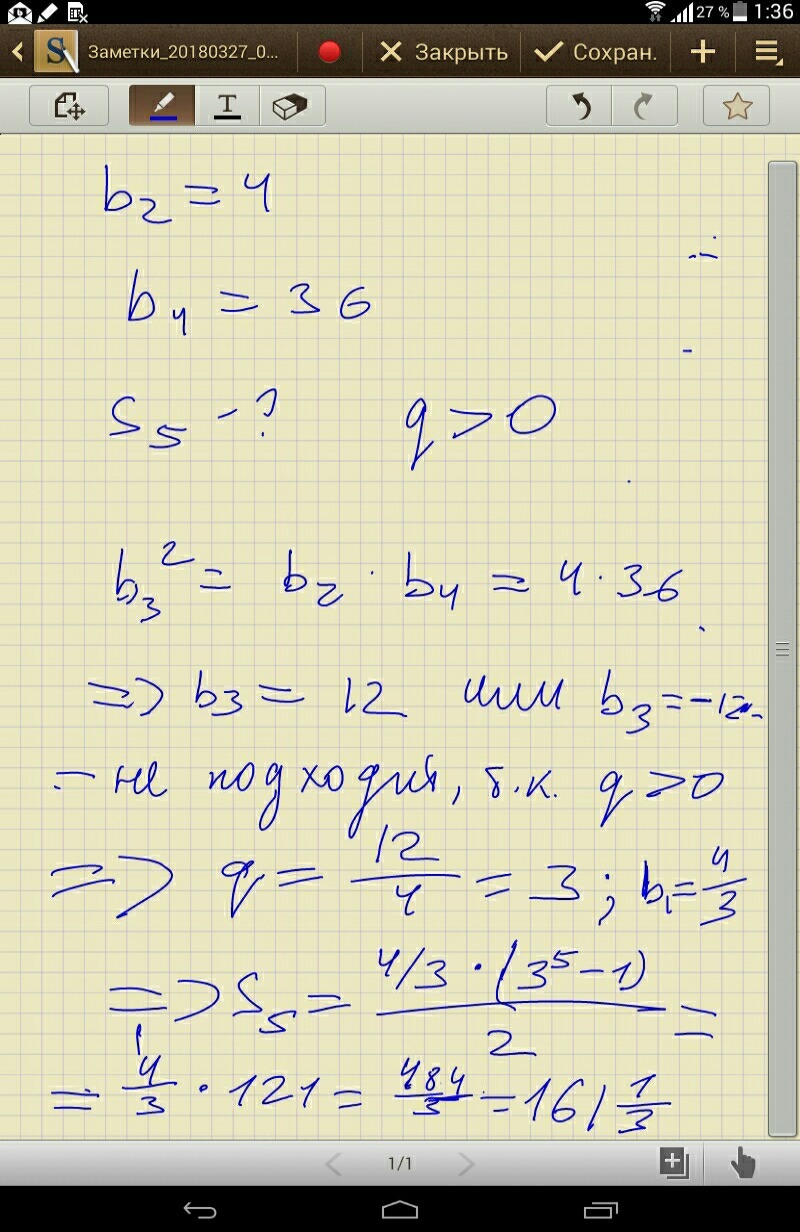 27 % 1:36
Заметки_20180327_0... Закрыть Сохран.
T
b₂ = 4
b₄ = 36
S₅ - ? q > 0
b₃² = b₂ · b₄ = 4 · 36
=> b₃ = 12 или b₃ = -12
- не подходит, т.к. q > 0
=> q = 12/4 = 3; b₁ = 4/3
=> S₅ = 4/3 · (3⁵ - 1) / 2 =
= 4/3 · 121 = 484/3 = 161 1/3
1/1